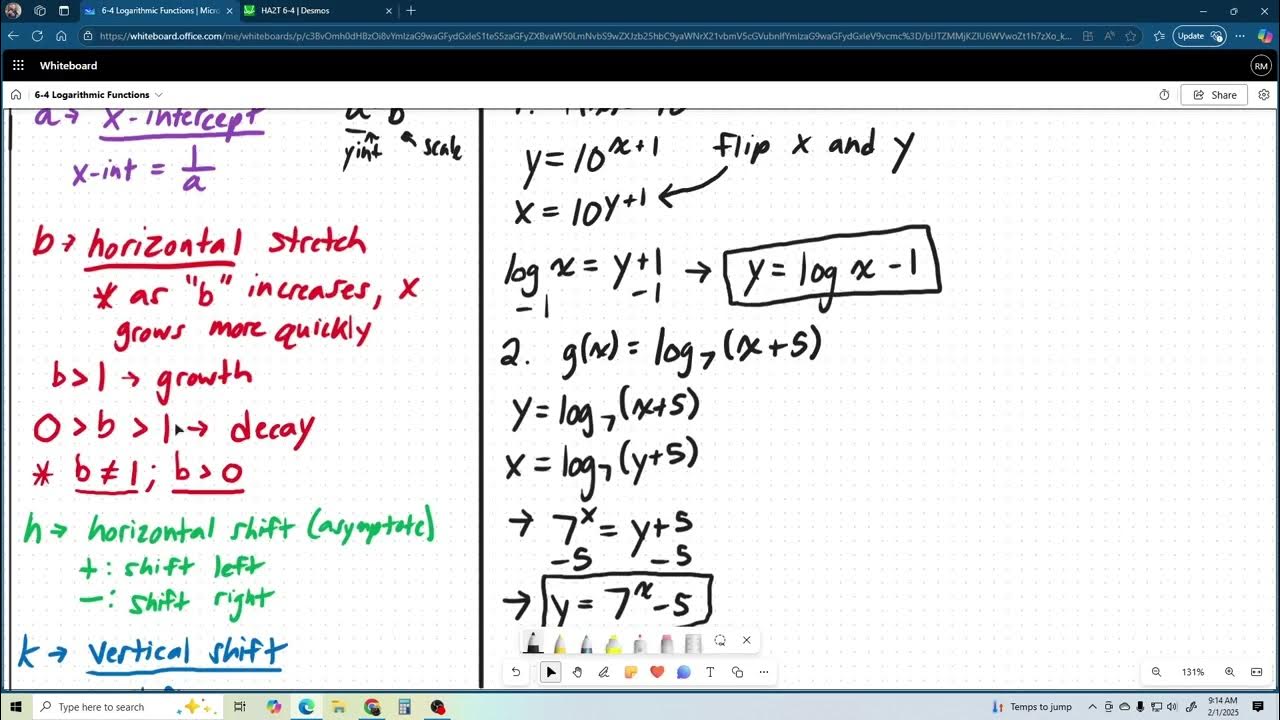 6-4 Logarithmic Functions | Micro
HA2T 6-4 | Desmos
Update
Whiteboard
RM
6-4 Logarithmic Functions
Share
a → x-intercept
x-int = 1/a
a b
yint
scale
b → horizontal stretch
* as "b" increases, x
grows more quickly
b > 1 → growth
0 > b > 1 → decay
* b ≠ 1; b > 0
h → horizontal shift (asymptote)
+: shift left
-: shift right
k → vertical shift
y = 10^(x+1)
flip x and y
x = 10^(y+1)
log x = y+1 → y = log x - 1
-1 -1
2. g(x) = log₇ (x+5)
y = log₇ (x+5)
x = log₇ (y+5)
→ 7^x = y+5
-5 -5
→ y = 7^x - 5
131%
Type here to search
Temps to jump
9:14 AM
2/1/2025